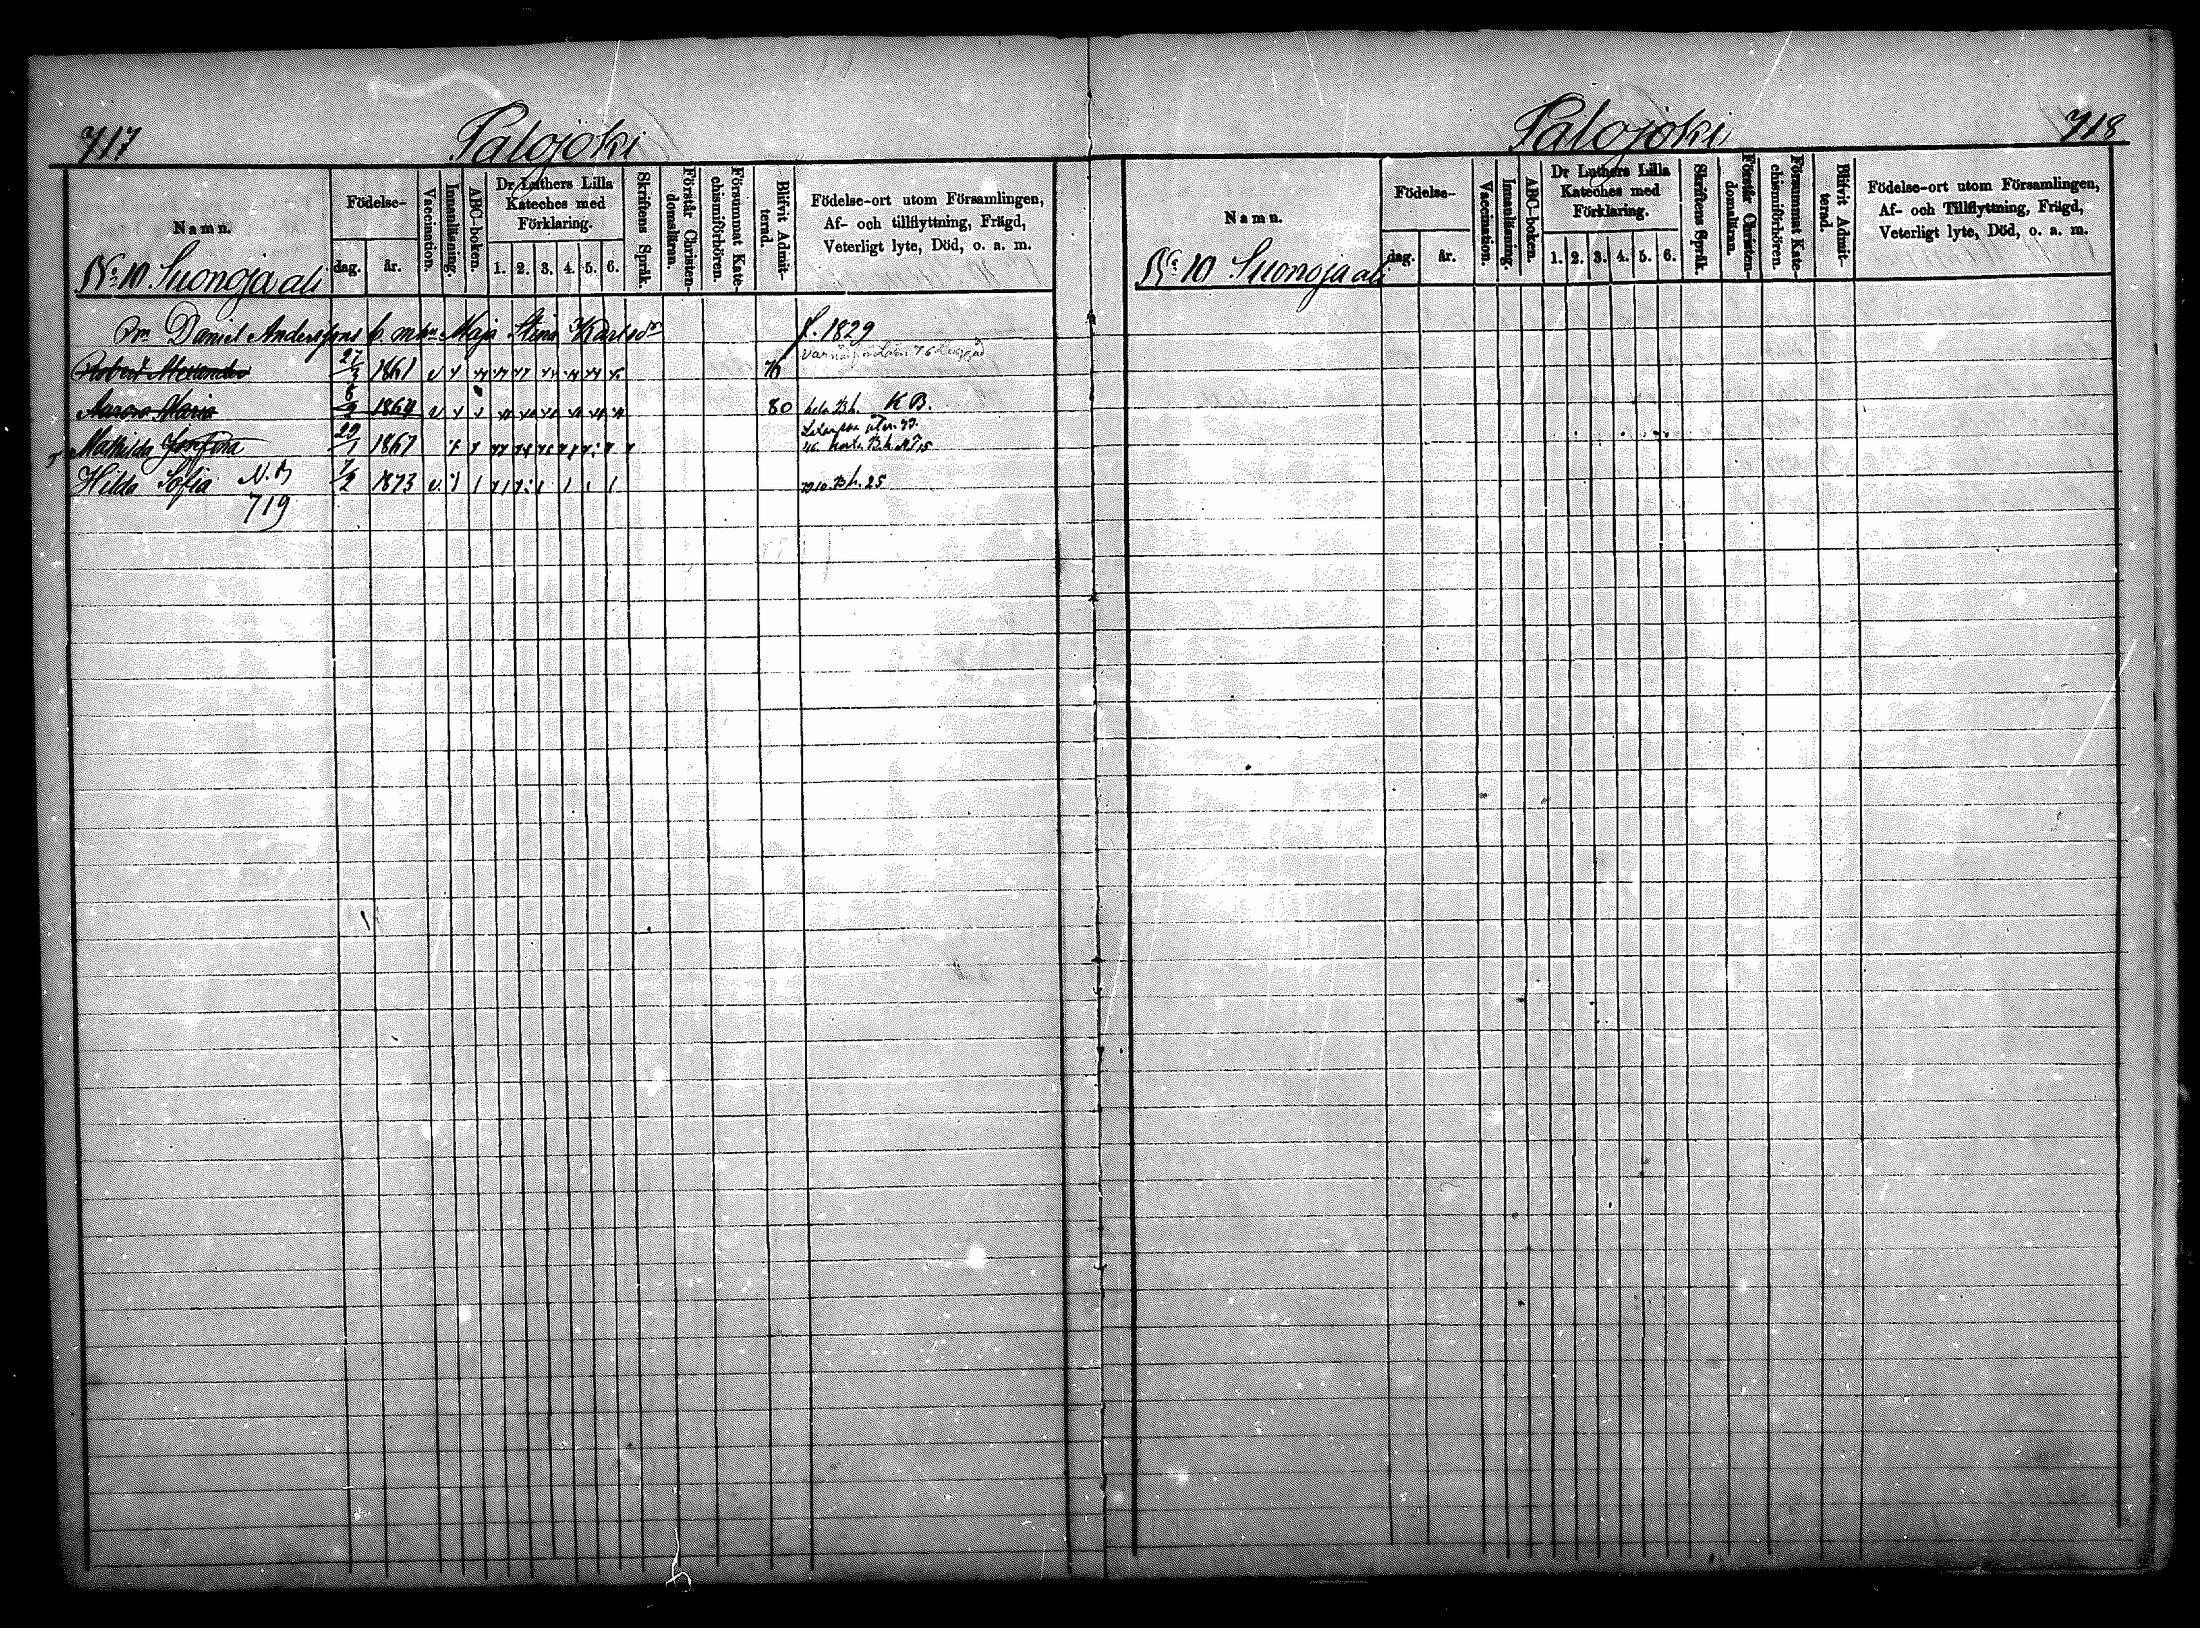 717
Palojoki
Namn.
Födelse-
dag.
år.
Vaccination.
Innanläsning.
ABC-boken.
Dr Luthers Lilla
Kateches med
Förklaring.
1. 2. 3. 4. 5. 6.
Skriftens Språk.
Förstår Christen-
domsläran.
Försummat Kate-
chismiförhören.
Blifvit Admit-
terad.
Födelse-ort utom Församlingen,
Af- och tillflyttning, Frägd,
Veterligt lyte, Död, o. a. m.
No 10 Suonojaali
Daniel Anderssons Maja Stina Karlsdr f. 1829
Robert Alexander 27/3 1861 76
Aurora Maria 8/2 1864 80 K B.
Mathilda Josefina 29/1 1867
Hilda Sofia N.B 7/2 1873 Bh. 25
719
718
Palojoki
Namn.
Födelse-
dag.
år.
Vaccination.
Innanläsning.
ABC-boken.
Dr Luthers Lilla
Kateches med
Förklaring.
1. 2. 3. 4. 5. 6.
Skriftens Språk.
Förstår Christen-
domsläran.
Försummat Kate-
chismiförhören.
Blifvit Admit-
terad.
Födelse-ort utom Församlingen,
Af- och Tillflyttning, Frägd,
Veterligt lyte, Död, o. a. m.
No 10 Suonojaali